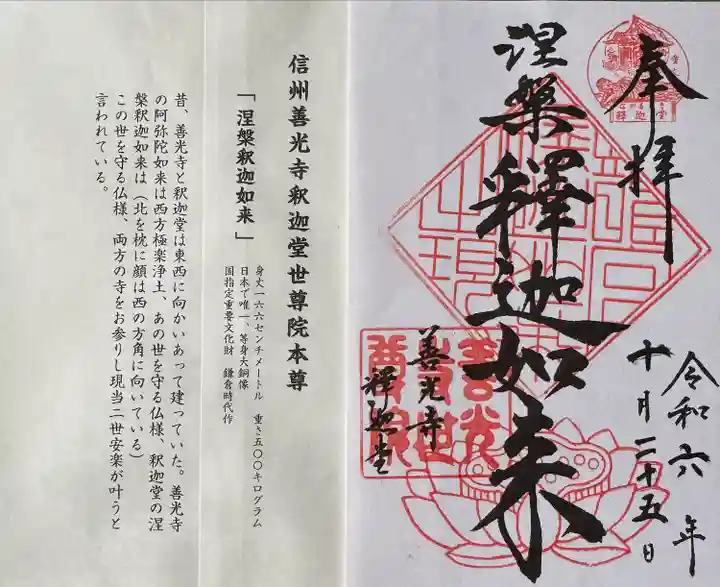 奉拝
涅槃釋迦如来
善光寺
釋迦堂
令和六年
十月二十五日
信州善光寺釈迦堂世尊院本尊
「涅槃釈迦如来」
身丈一六六センチメートル 重さ五〇〇キログラム
日本で唯一、等身大銅像
国指定重要文化財 鎌倉時代作
昔、善光寺と釈迦堂は東西に向かいあって建っていた。善光寺
の阿弥陀如来は西方極楽浄土、あの世を守る仏様、釈迦堂の涅
槃釈迦如来は（北を枕に顔は西の方角に向いている）
この世を守る仏様、両方の寺をお参りし現当二世安楽が叶うと
言われている。